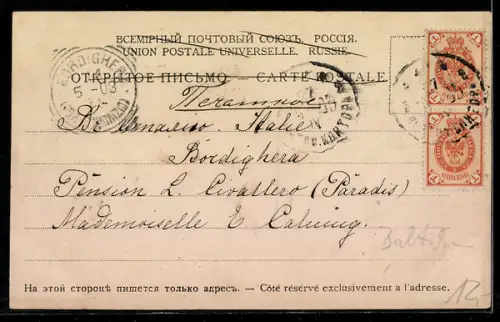 ВСЕМІРНЫЙ ПОЧТОВЫЙ СОЮЗЪ. РОССІЯ.
UNION POSTALE UNIVERSELLE. RUSSIE.
ОТКРЫТОЕ ПИСЬМО. — CARTE POSTALE.
BORDIGHERA
5 - 03
Печатное.
Въ Италію. Italie
Bordighera
Pension L. Civallero (Paradis)
Mademoiselle E
На этой сторонѣ пишется только адресъ. — Côté réservé exclusivement a l'adresse.
12,-